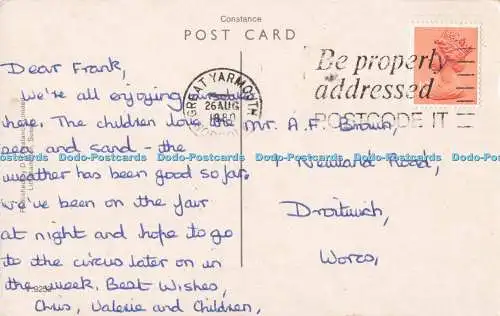 Constance
POST CARD
Dear Frank,
We're all enjoying ourselves
here. The children love the
sea and sand - the
weather has been good so far.
We've been on the fair
at night and hope to go
to the circus later on in
the week. Best Wishes,
Chris, Valerie and Children,
GREAT YARMOUTH
26 AUG
1980
Be properly
addressed
POSTCODE IT
Mr. A. F. Brown,
Newland Road,
Droitwich,
Worcs,
Dodo-Postcards Dodo-Postcards Dodo-Postcards Dodo-Postcards Dodo-Postcards Dodo-Postcards